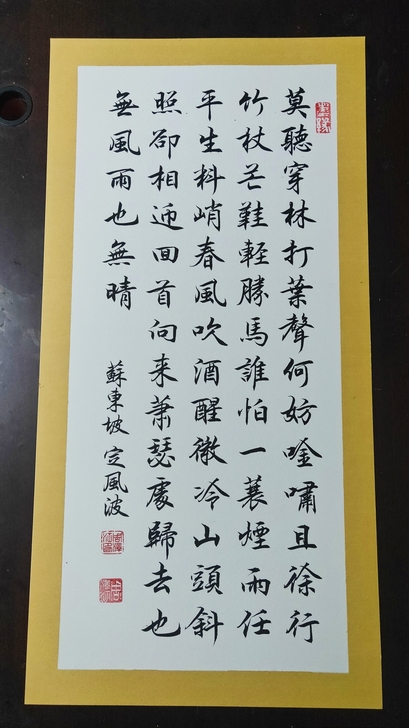 莫聽穿林打葉聲何妨唫嘯且徐行
竹杖芒鞋輕勝馬誰怕一蓑煙雨任
平生料峭春風吹酒醒微冷山頭斜
照卻相迎回首向来蕭瑟處歸去也
無風雨也無晴
蘇東坡定風波